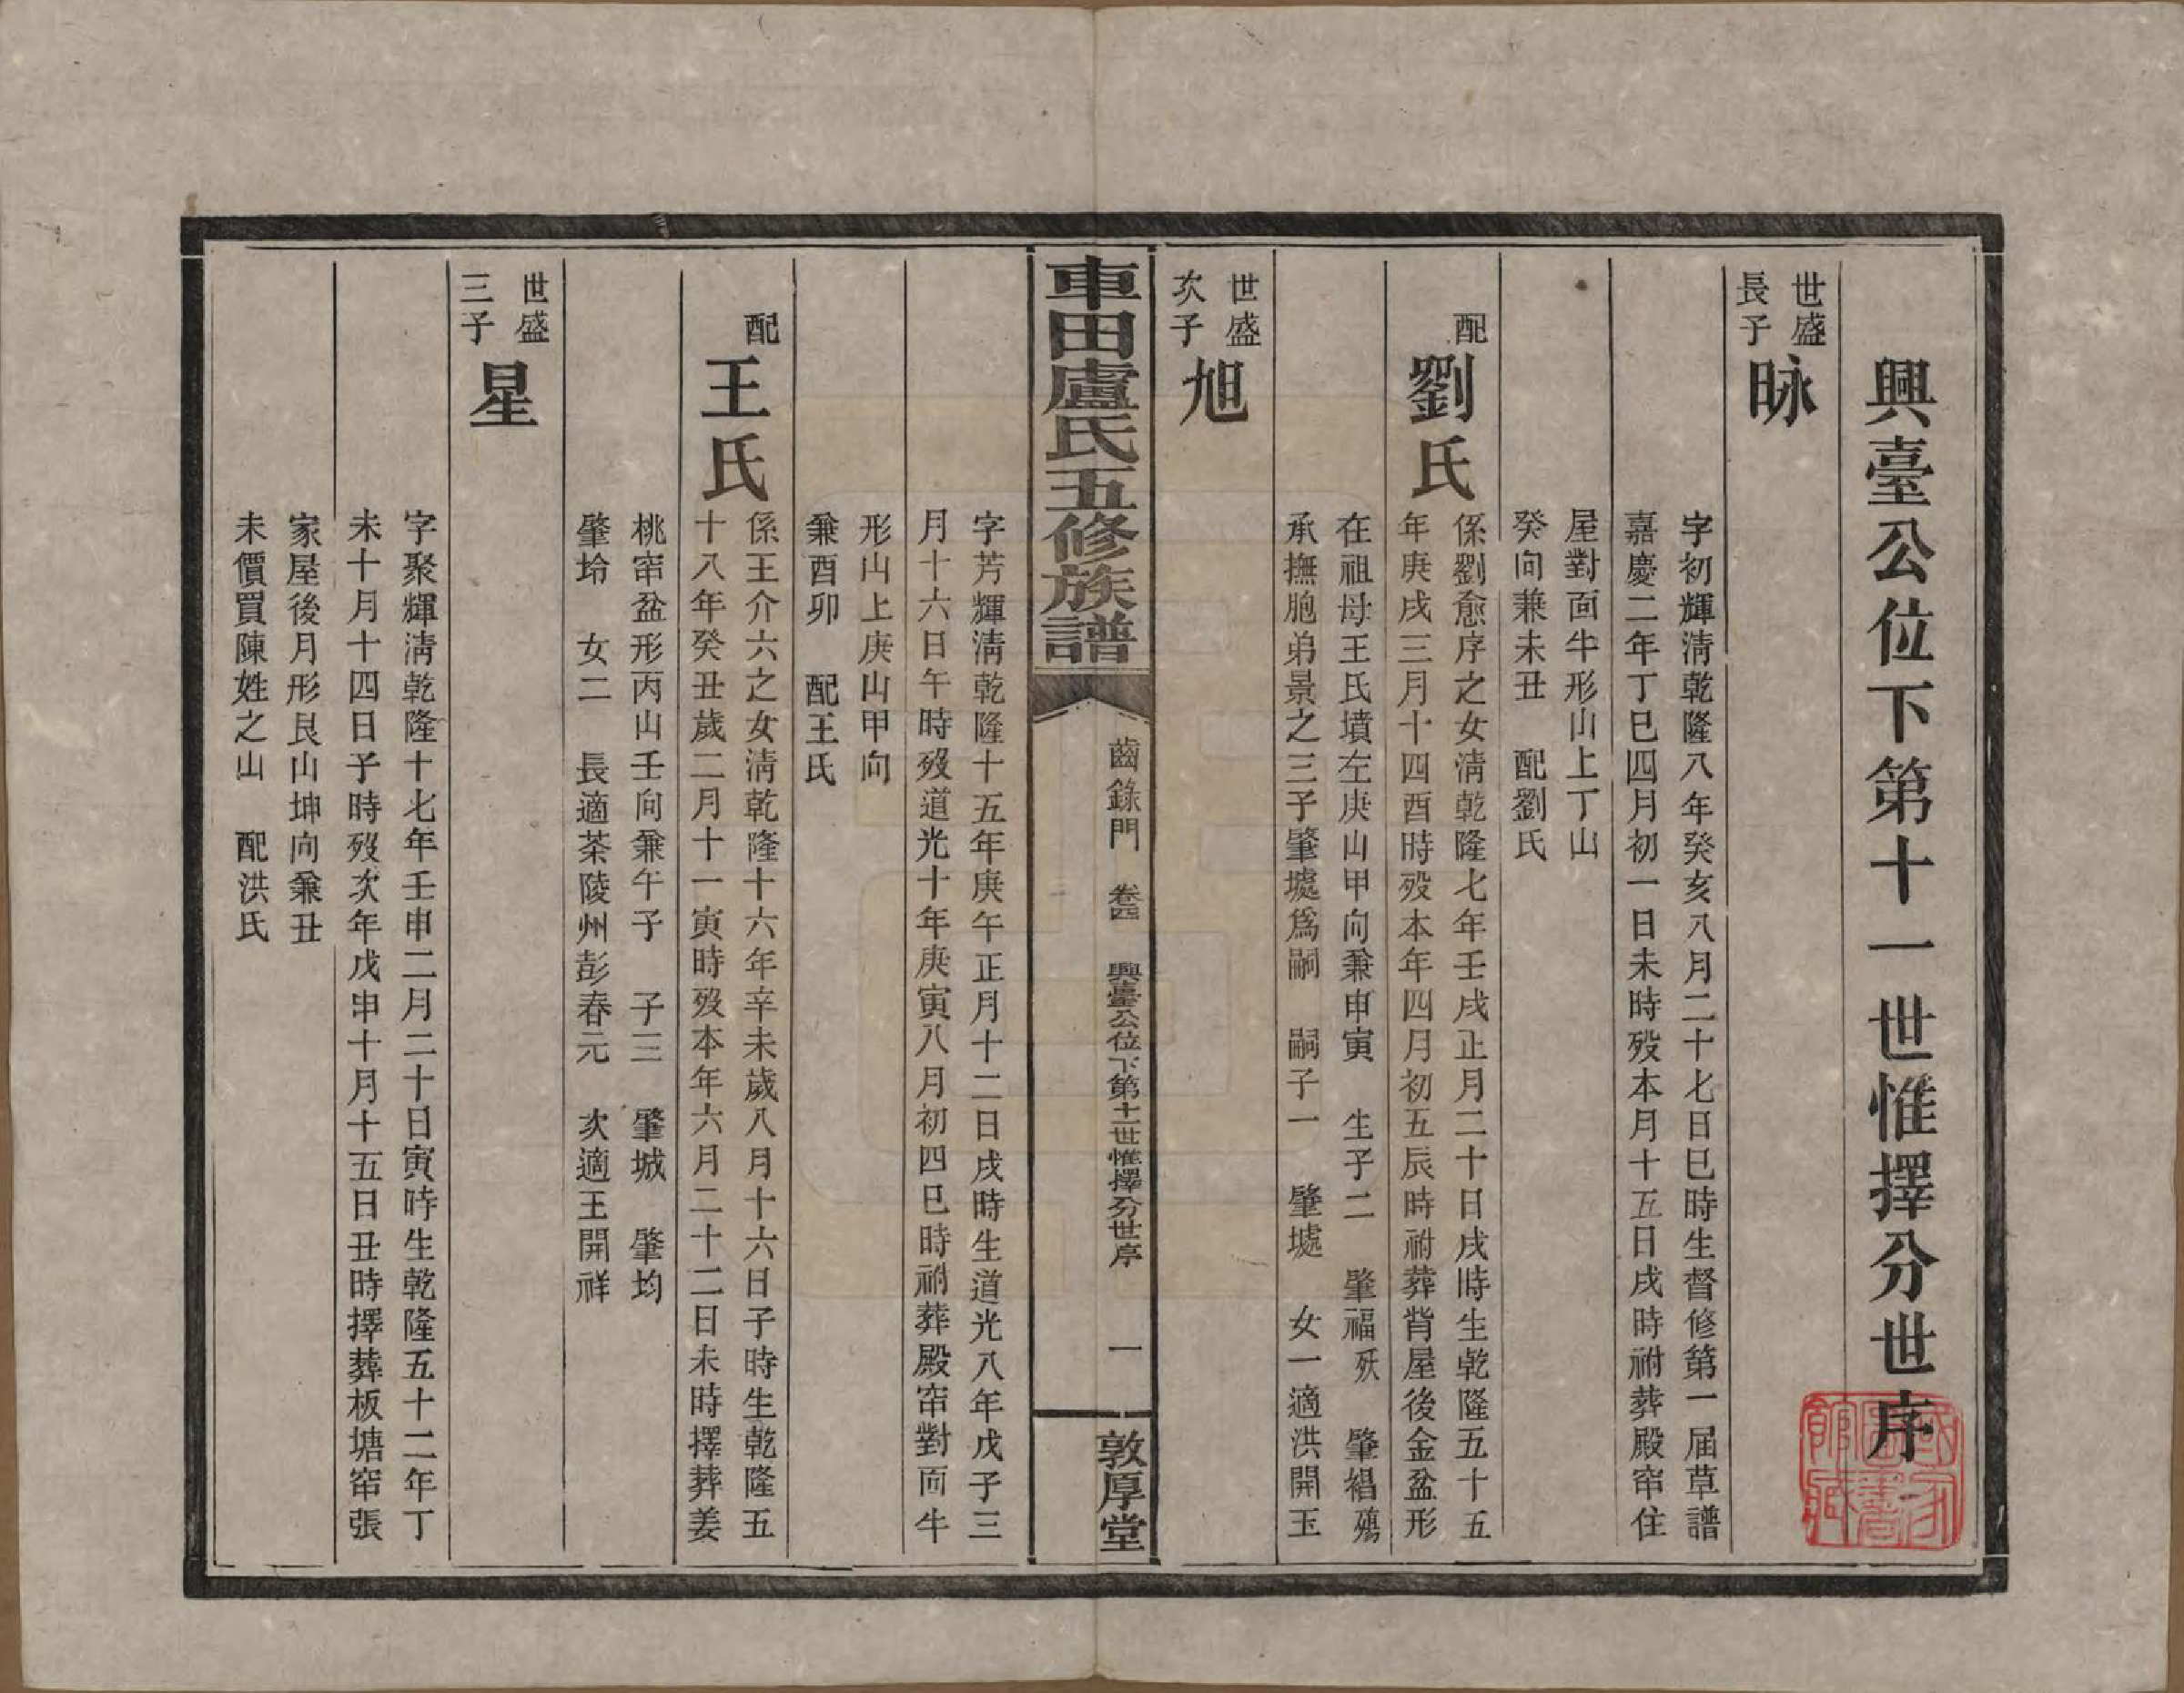 興臺公位下第十一世惟擇分世序
世盛
長子
昹
字初輝清乾隆八年癸亥八月二十七日巳時生督修第一届草譜
嘉慶二年丁巳四月初一日未時歿本月十五日戌時祔葬殿窂住
屋對面牛形山上丁山
癸向兼未丑　配劉氏
配
劉氏
係劉愈序之女清乾隆七年壬戌正月二十日戌時生乾隆五十五
年庚戌三月十四酉時歿本年四月初五辰時祔葬背屋後金盆形
在祖母王氏墳左庚山甲向兼申寅　生子二　肇福殀　肇裮殤
承撫胞弟景之三子肇墟爲嗣　嗣子一　肇墟　女一適洪開玉
世盛
次子
旭
車田盧氏五修族譜
齒錄門　卷四　興臺公位下第十一世惟擇分世序　一
敦厚堂
字芳輝清乾隆十五年庚午正月十二日戌時生道光八年戊子三
月十六日午時歿道光十年庚寅八月初四巳時祔葬殿窂對面牛
形山上庚山甲向
兼酉卯　配王氏
配
王氏
係王介六之女清乾隆十六年辛未歲八月十六日子時生乾隆五
十八年癸丑歲二月十一寅時歿本年六月二十二日未時擇葬姜
桃窂盆形丙山壬向兼午子　子三　肇城　肇均
肇坽　女二　長適茶陵州彭春元　次適王開祥
世盛
三子
星
字聚輝清乾隆十七年壬申二月二十日寅時生乾隆五十二年丁
未十月十四日子時歿次年戊申十月十五日丑時擇葬板塘窂張
家屋後月形艮山坤向兼丑
未價買陳姓之山　配洪氏